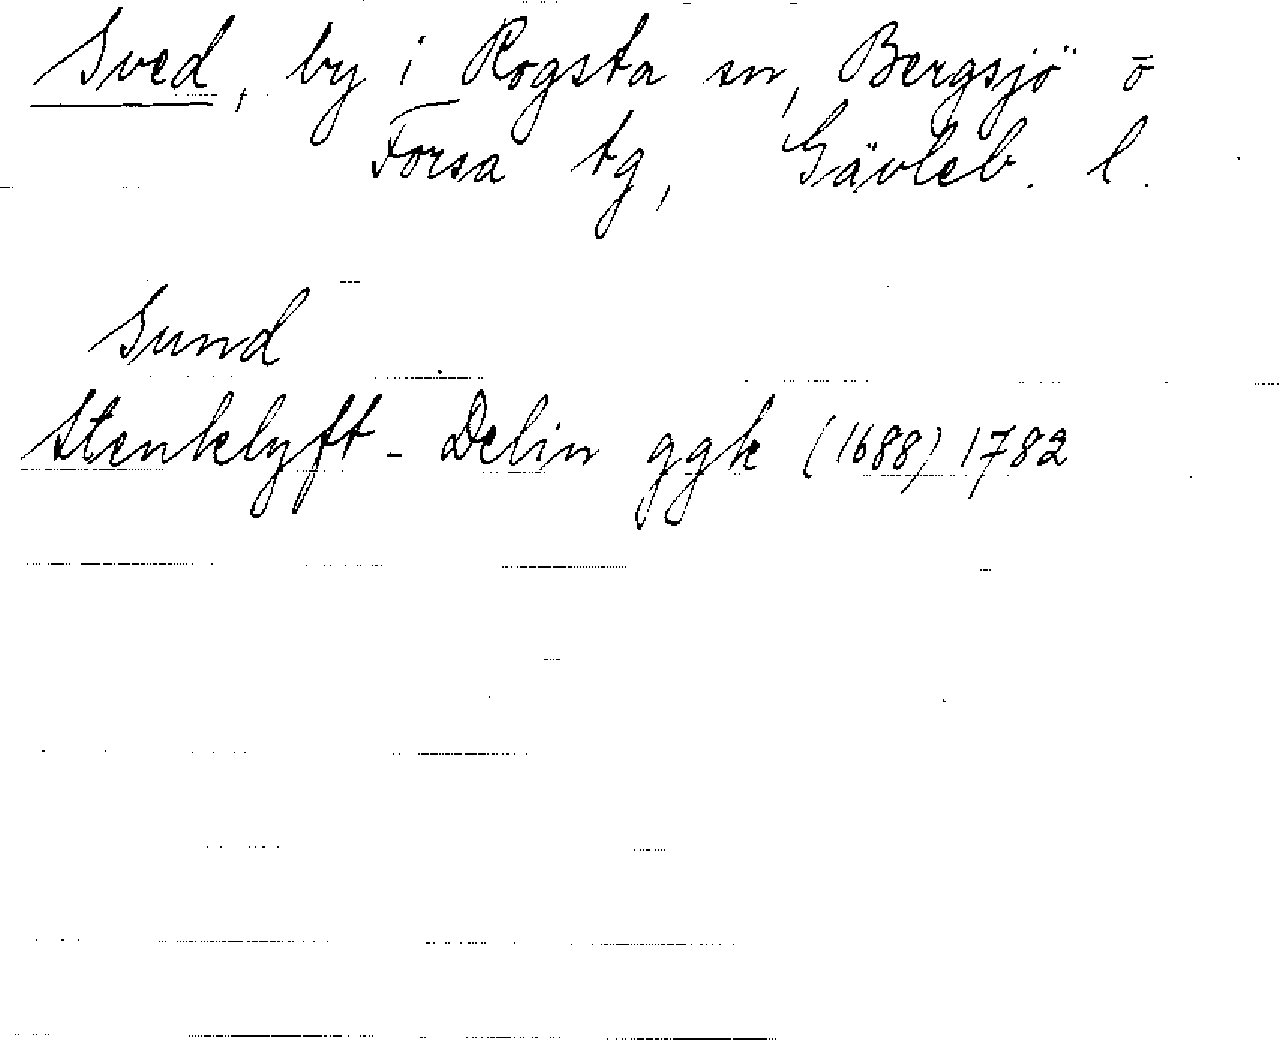 Sved, by i Rogsta sn, Bergsjö o
Forsa tg, Gävleb. l.
Sund
Stenklyft - Delin ggk (1688) 1782